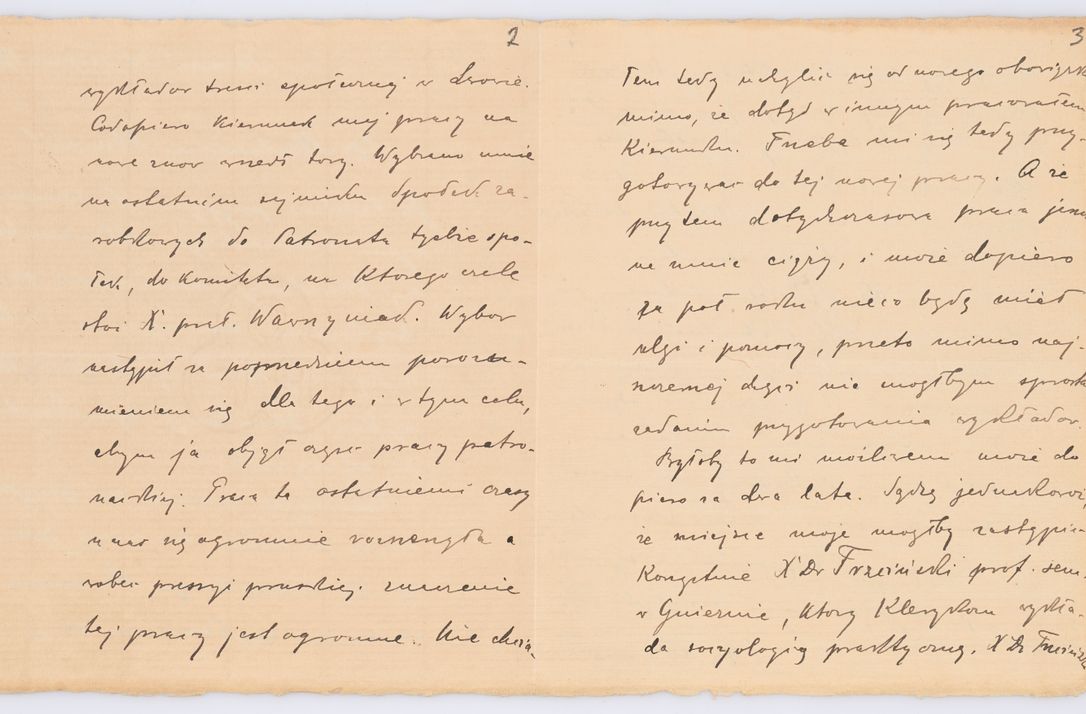 2
wykładów treści społecznej w Lwowie.
Codopiero kierunek mej pracy na
nowe znów wszedł tory. Wybrano mnie
na ostatnim sejmiku Spółek za-
robkowych do Patronatu tychże spó-
łek, do komitetu, na którego czele
stoi X. prał. Wawrzyniak. Wybór
nastąpił za poprzedniem porozu-
mieniem się dla tego i w tym celu,
abym ja objął część pracy patro-
nackiej. Praca ta ostatniemi czasy
u nas się ogromnie rozszerzyła a
wobec presyi pruskiej znaczenie
tej pracy jest ogromne. Nie chcia-
3
łem tedy uchylić się od nowego obowiązku
mimo, że dotąd w innym pracowałem
kierunku. Trzeba mi się tedy przy-
gotowywać do tej nowej pracy. A że
przytem dotychczasowa praca jeszcze
na mnie ciąży, i może dopiero
za pół roku nieco będę miał
ulgi i pomocy, przeto mimo naj-
szczerszej chęci nie mógłbym sprostać
zadaniu przygotowania wykładów.
Byłoby to mi możliwem może do
piero za dwa lata. Sądzę jednakowoż,
że miejsce moje mógłby zastąpić
Kongetnie X Dr Trzciński prof. sem.
w Gnieźnie, który klerykom wykła-
da socyologię praktyczną. X Dr Trzciński